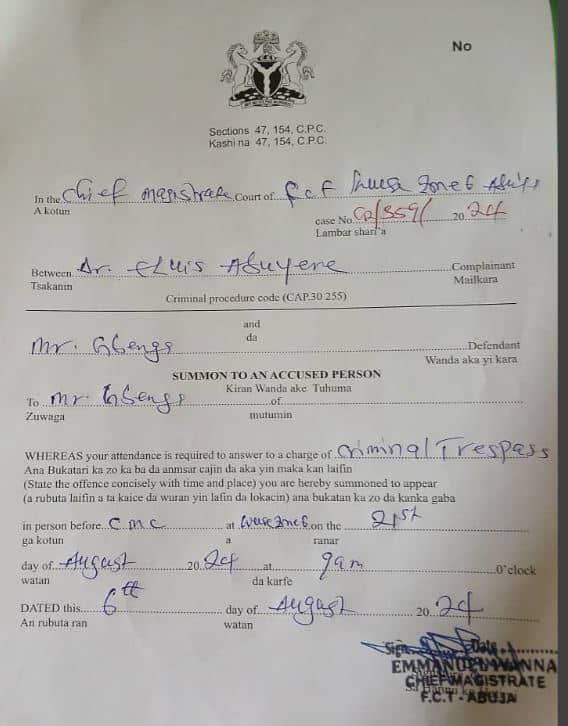 No
Sections 47, 154, C.P.C.
Kashi na 47, 154, C.P.C.
In the Chief magistrate Court of F.C.T Wuse Zone 6 Abuja
A kotun
case No. CR/359/ 2024
Lambar shari'a
Between Dr. Eluis Abuyene Complainant
Tsakanin Mailkara
Criminal procedure code (CAP.30 255)
and
da
Mr. Gbenga Defendant
Wanda aka yi kara
SUMMON TO AN ACCUSED PERSON
Kiran Wanda ake Tuhuma
To Mr Gbenga of
Zuwaga mutumin
WHEREAS your attendance is required to answer to a charge of Criminal Trespass
Ana Bukatari ka zo ka ba da anmsar cajin da aka yin maka kan laifin
(State the offence concisely with time and place) you are hereby summoned to appear
(a rubuta laifin a ta kaice da wuran yin lafin da lokacin) ana bukatan ka zo da kanka gaba
in person before C M C at Wuse Zone 6 on the 21st
ga kotun a ranar
day of August 2024 at 9am O'clock
watan da karfe
DATED this 6th day of August 2024
An rubuta ran watan
Sign Date
EMMANUEL IYANNA
CHIEF MAGISTRATE
F.C.T - ABUJA